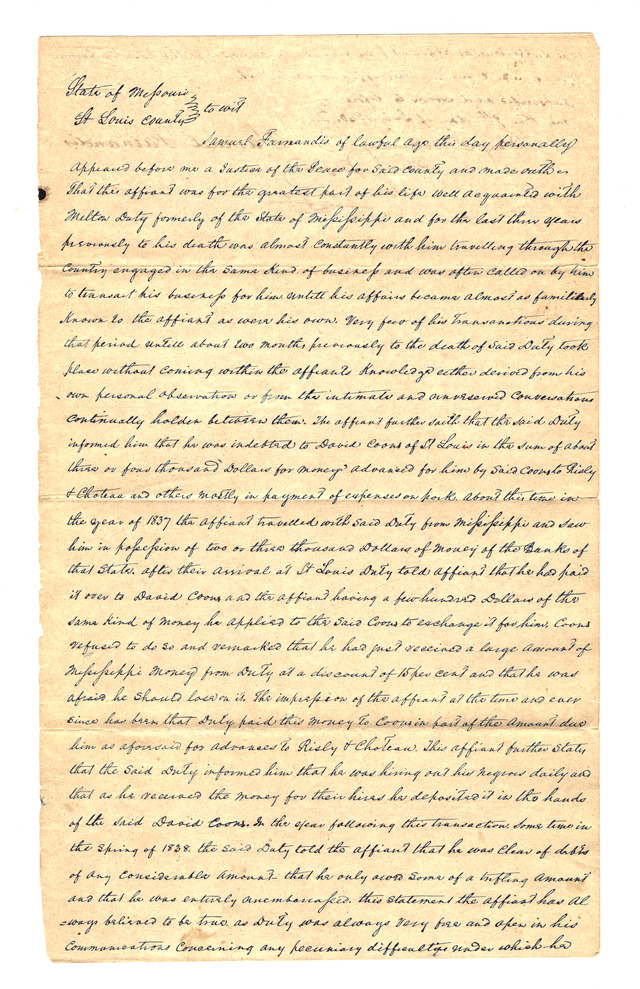 State of Missouri
St Louis County } to wit
Samuel Farnandis of lawful age this day personally
Appeared before me a Justice of the Peace for said County and made oath
That the affiant was for the greatest part of his life well acquainted with
Milton Duty formerly of the State of Mississippi and for the last three years
previously to his death was almost constantly with him travelling through the
Country engaged in the same kind of business and was often called on by him
to transact his business for him untill his affairs became almost as familiarly
Known to the affiant as were his own. Very few of his Transanctions during
that period untill about two months previously to the death of said Duty took
place without coming within the affiants Knowledge either derived from his
own personal observation or from the intimate and unreserved Conversations
continually holden between them. The affiant further saith that the said Duty
informed him that he was indebted to David Coons of St Louis in the sum of about
three or four thousand Dollars for money advanced for him by said Coons to Risly
& Choteau and others mostly in payment of expenses on pork. About this time in
the year of 1837 the affiant travelled with said Duty from Mississippi and saw
him in possession of two or three thousand Dollars of Money of the Banks of
that State. after their arrival at St Louis Duty told affiant that he had paid
it over to David Coons and the affiant having a few hundred Dollars of the
same kind of money he applied to the said Coons to exchange it for him. Coons
refused to do so and remarked that he had just received a large amount of
Mississippi Money from Duty at a discount of 15 per cent and that he was
afraid he should lose on it. The impression of the affiant at the time and ever
since has been that Duty paid this money to Coons in part of the amount due
him as aforesaid for advances to Risly & Choteau. This affiant further States
that the said Duty informed him that he was hiring out his negroes daily and
that as he received the money for their hires he deposited it in the hands
of the said David Coons. In the year following this transaction, some time in
the spring of 1838. the said Duty told the affiant that he was clear of debts
of any considerable amount. that he only owed some of a trifling amount
and that he was entirely unembarrassed. this statement the affiant has Al
=ways believed to be true as Duty was always very free and open in his
Communications concerning any pecuniary difficultys under which he